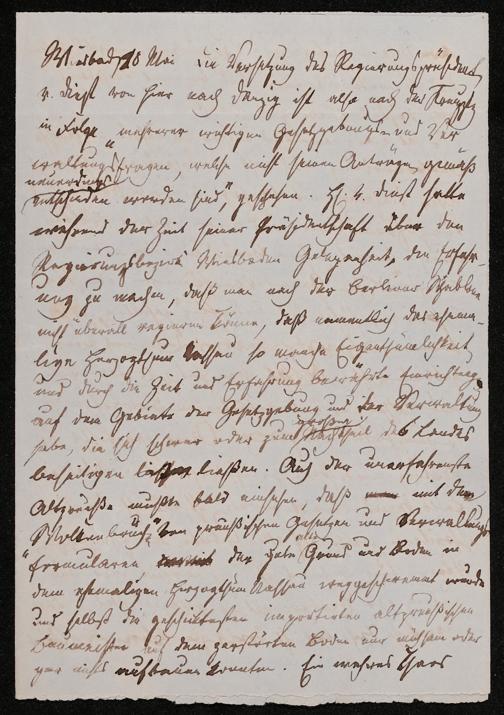 Wiesbad, 10 Mai Die Versetzung des Regierungspräsident
v. Diest von hier nach Danzig ist also nach der Kreuzztg
in Folge mehrerer wichtigen Gesetzgebungs- und Ver
waltungsfragen, welche nicht seinen Anträgen gemäß
neuerdings
entschieden worden sind", geschehen. H. v. Diest hatte
während der Zeit seiner Präsidentschaft über den
Regierungsbezirk Wiesbaden Gelegenheit, die Erfah-
rung zu machen, daß man nach der Berliner Schablone
nicht überall regieren könne, daß namentlich das ehema-
lige Herzogthum Nassau so manche Eigenthümlichkeit
und durch die Zeit und Erfahrung bewährte Einrichtung
auf dem Gebiete der Gesetzgebung und der Verwaltung
habe, die sich schwer oder zum großen Nachtheil des Landes
beseitigen ließen. Auch der unerfahrenste
Altpreuße mußte bald einsehen daß mit dem
"Wolkenbruch" von preußischen Gesetzen und Verwaltungs
"formularen der gute alte Grund und Boden in
dem ehemaligen Herzogthum Nassau weggeschwemmt wurde
und selbst die geschicktesten importirten altpreußischen
Baumeister auf dem zerstörten Boden nur mühsam oder
gar nichts aufbauen konnten. Ein wahres Chaos